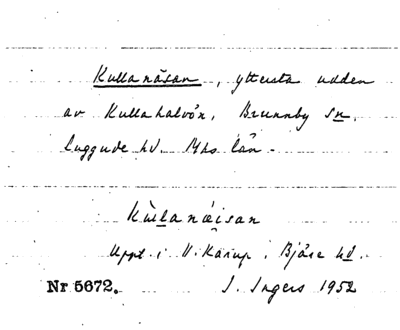 Kullanäsan, yttersta udden
av Kullahalvön, Brunnby sn,
Luggude hd. Mhs län.
Kùllanæisan
Uppt. i V. Karup, Bjäre hd.
Nr 5672. I. Ingers 1952